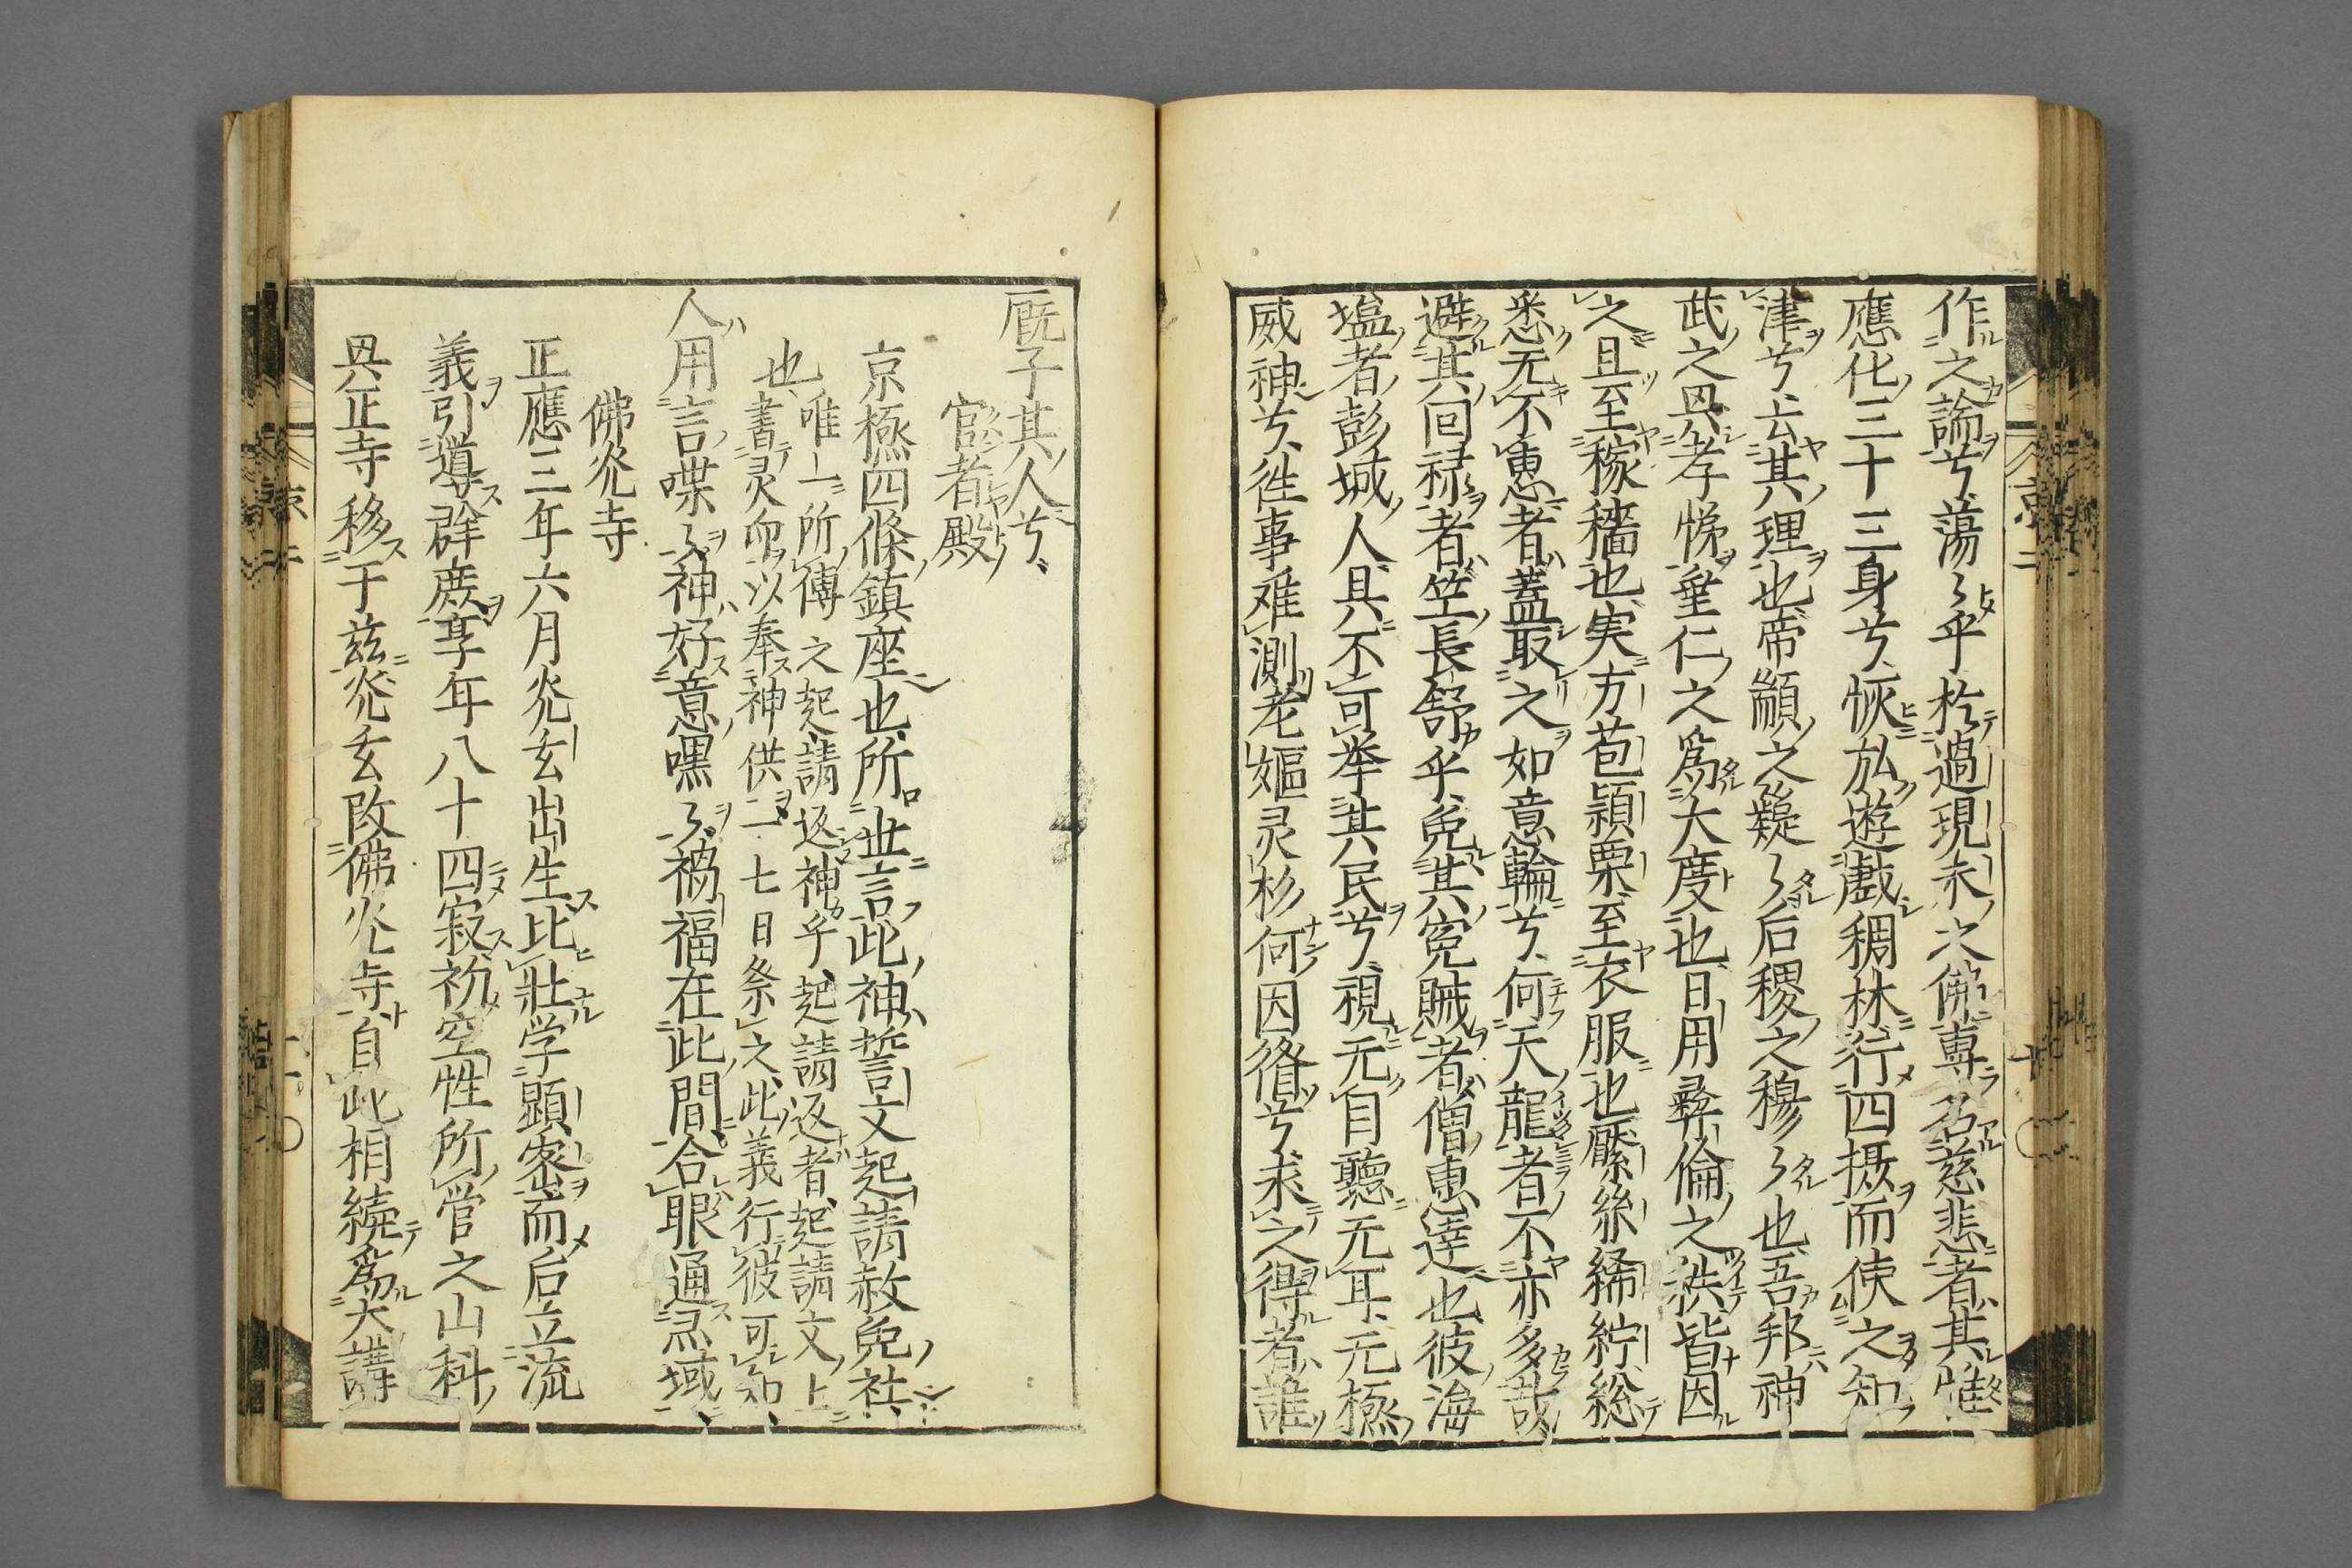 作之論兮蕩〻乎於過現未之佛專名慈悲者其惟
應化三十三身兮恢弘遊戯稠林行四摂而使之知
津兮云其理也帝顓之嶷〻后稷之穆〻也吾邦神
武之興孝悌垂仁之為大度也日用彝倫之秩皆因
之且至稼穡也実方苞頴栗至衣服也緊絲絺紵総
悉无不恵者蓋取之如意輪兮何天龍者不亦多哉
避其回禄者笠長舒乎免其寃賊者僧恵達也彼海
塩者彭城人具不可挙其民兮視无目聽无耳无極
威神兮徃事难測老嫗灵杉何因脩兮求之得者誰
厩子其人兮
官者殿
京極四條鎮座也所世言此神誓文起請赦免社
也唯一所傳之起請返神乎起請返者起請文上
書灵印以奉神供二七日祭之此義行彼可知
人用言喋〻神好意嘿〻禍福在此間合眼通灵域
佛炛寺
正應三年六月炛玄出生比壯学顕密而后立流
義引導群庶享年八十四寂初空性所営之山科
興正寺移于茲炛玄改佛炛寺自此相續為大講